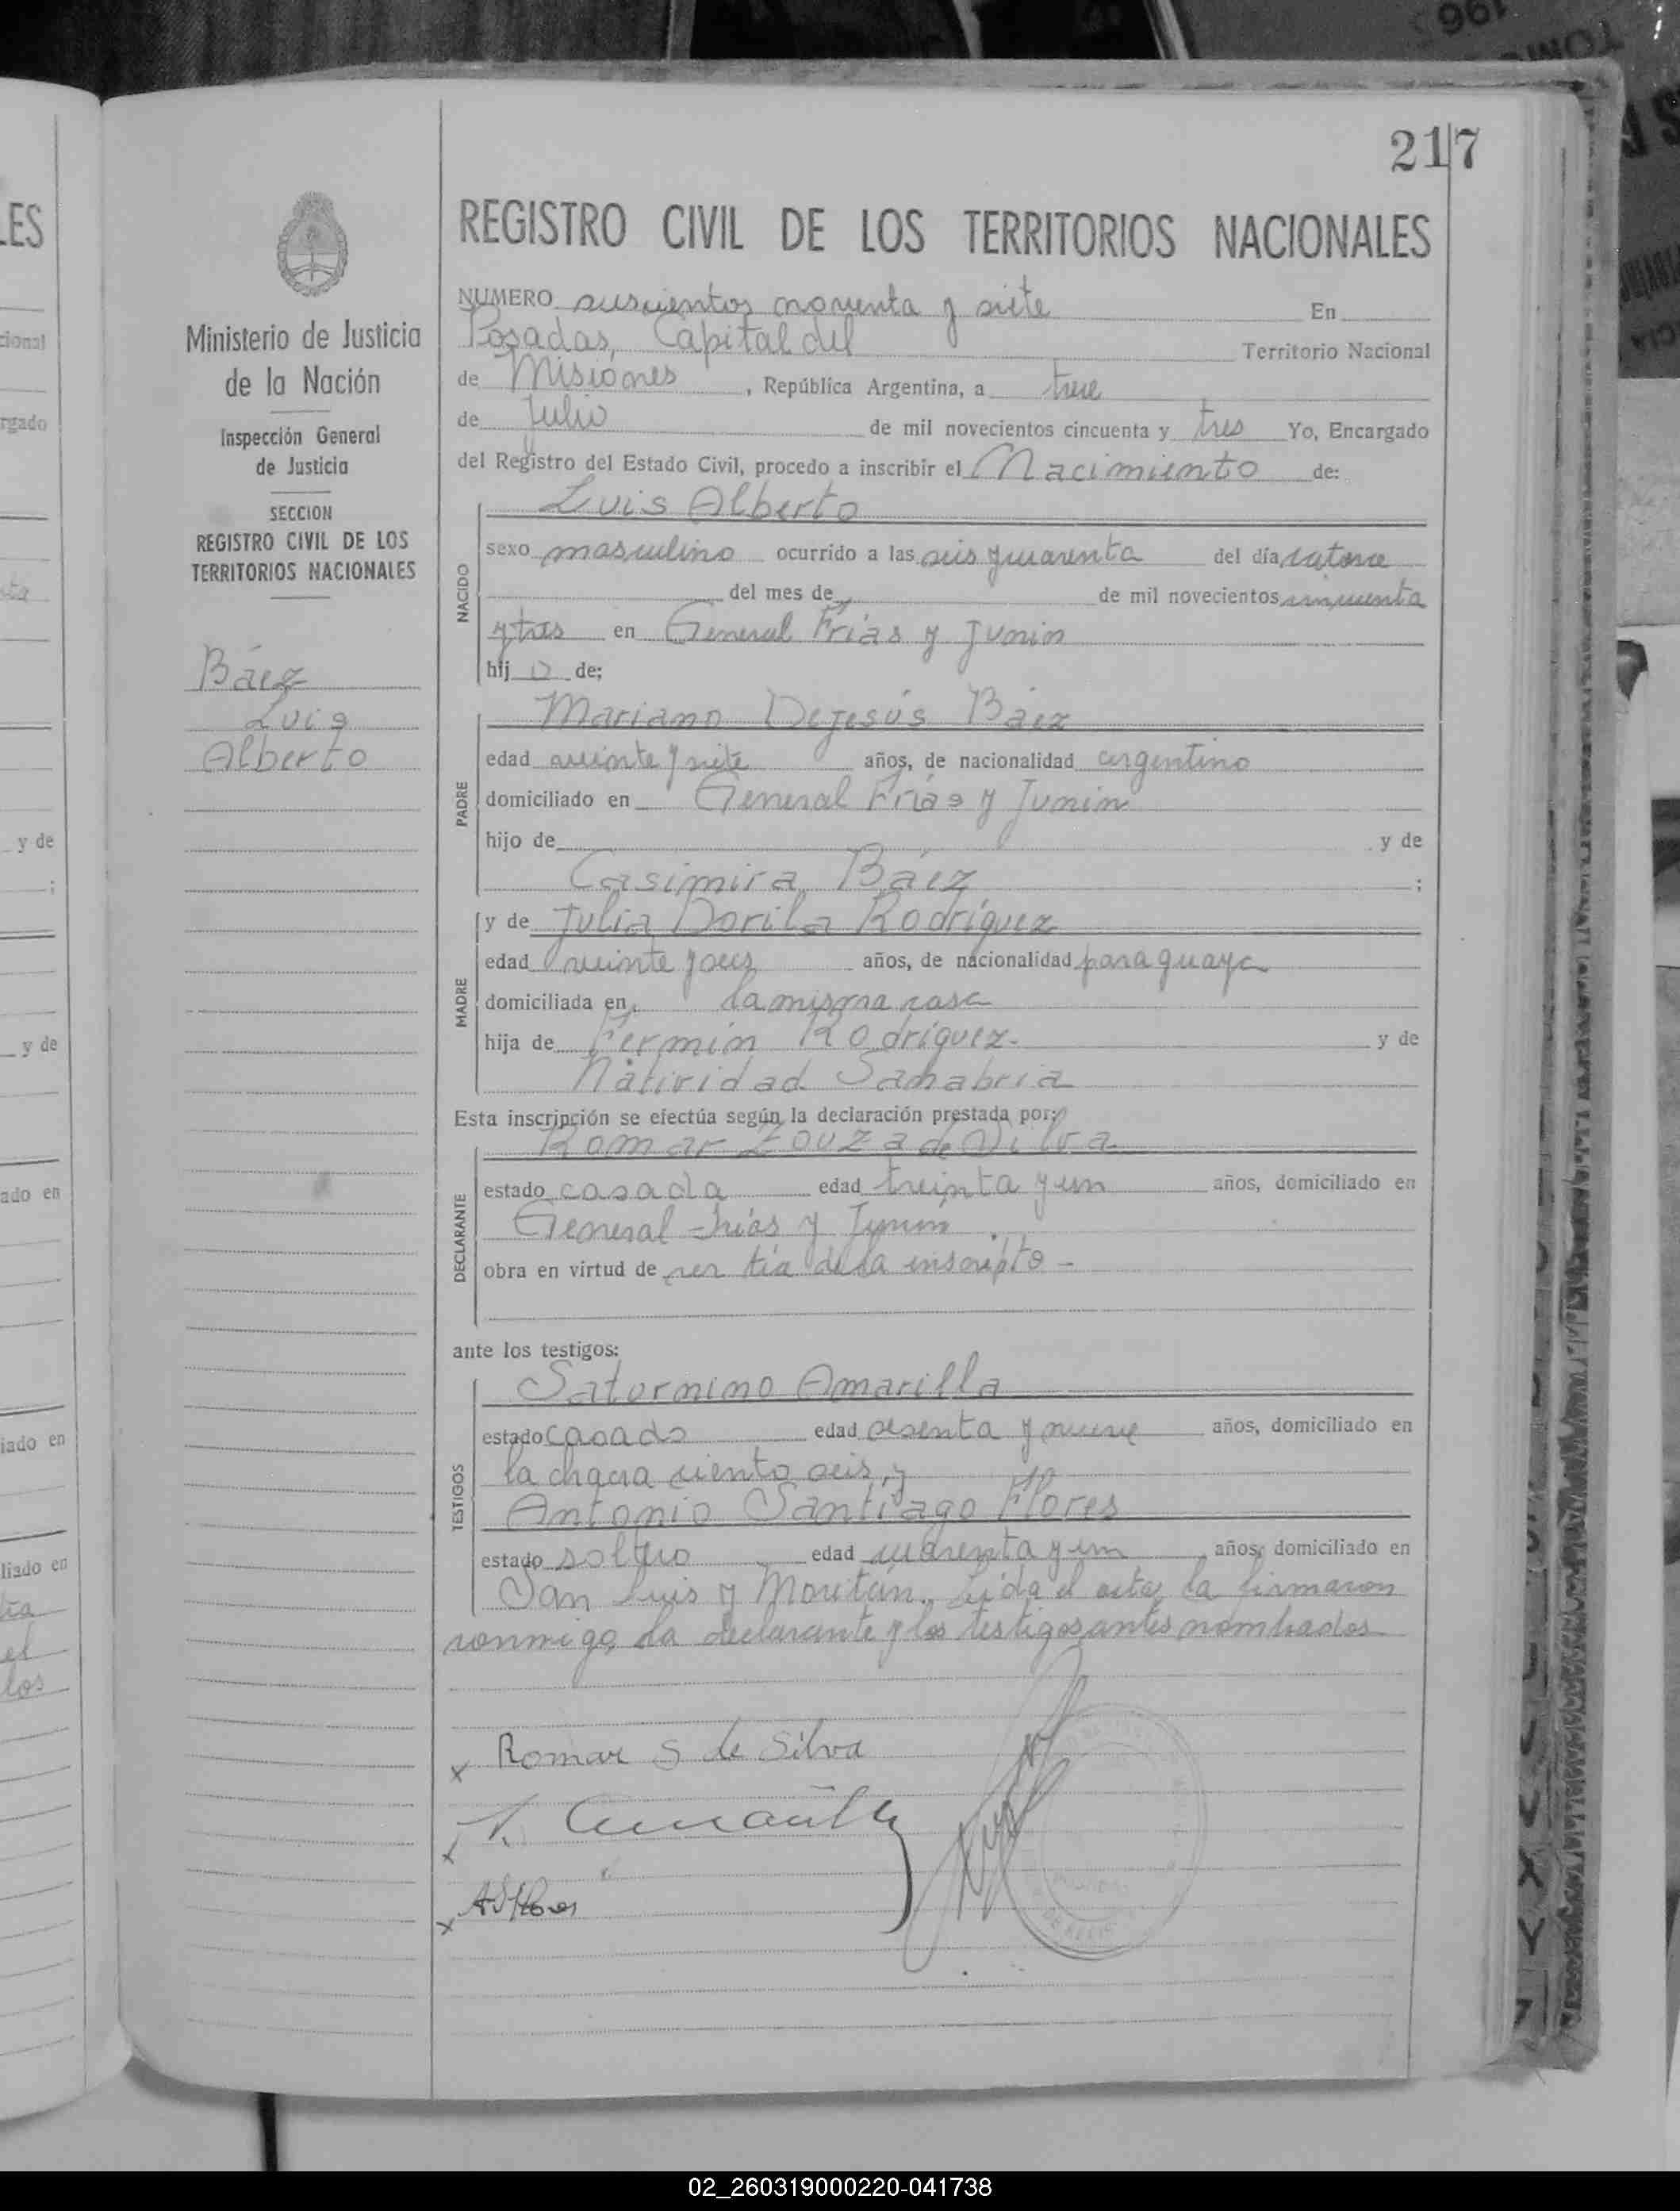 217
REGISTRO CIVIL DE LOS TERRITORIOS NACIONALES
Ministerio de Justicia
de la Nación
Inspección General
de Justicia
SECCION
REGISTRO CIVIL DE LOS
TERRITORIOS NACIONALES
Báez
Luis
Alberto
NUMERO seiscientos noventa y siete En
Posadas, Capital del Territorio Nacional
de Misiones, República Argentina, a trece
de Julio de mil novecientos cincuenta y tres Yo, Encargado
del Registro del Estado Civil, procedo a inscribir el Nacimiento de:
NACIDO
Luis Alberto
sexo masculino ocurrido a las seis y cuarenta del día catorce
del mes de de mil novecientos cincuenta
y tres en General Frías y Junin
hij o de;
PADRE
Mariano Dejesús Báez
edad veinte y siete años, de nacionalidad argentino
domiciliado en General Frías y Junin
hijo de y de
Casimira Báez ;
MADRE
y de Julia Dorila Rodríguez
edad veinte y seis años, de nacionalidad paraguaya
domiciliada en la misma casa
hija de Fermín Rodríguez. y de
Natividad Sanabria
Esta inscripción se efectúa según la declaración prestada por:
DECLARANTE
Romar Zouza de Silva
estado casada edad treinta y un años, domiciliado en
General Frías y Junin
obra en virtud de ser tía de la inscripto -
ante los testigos:
TESTIGOS
Saturnino Amarilla
estado casado edad sesenta y nueve años, domiciliado en
la chacra ciento seis, y
Antonio Santiago Flores
estado soltero edad cuarenta y un años, domiciliado en
San Luis y Moritán. Leída el acta, la firmaron
conmigo, la declarante y los testigos antes nombrados
x Romar S de Silva
x S. Amarilla
x ASFlores
y de
;
y de
ado en
iado en
liado en
el
los
02_260319000220-041738